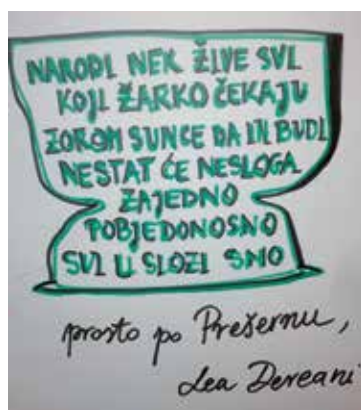 NARODI NEK ŽIVE SVI
KOJI ŽARKO ČEKAJU
ZOROM SUNCE DA IH BUDI
NESTAT ĆE NESLOGA
ZAJEDNO
POBJEDONOSNO
SVI U SLOZI SMO
prosto po Prešernu,
Lea Dereani